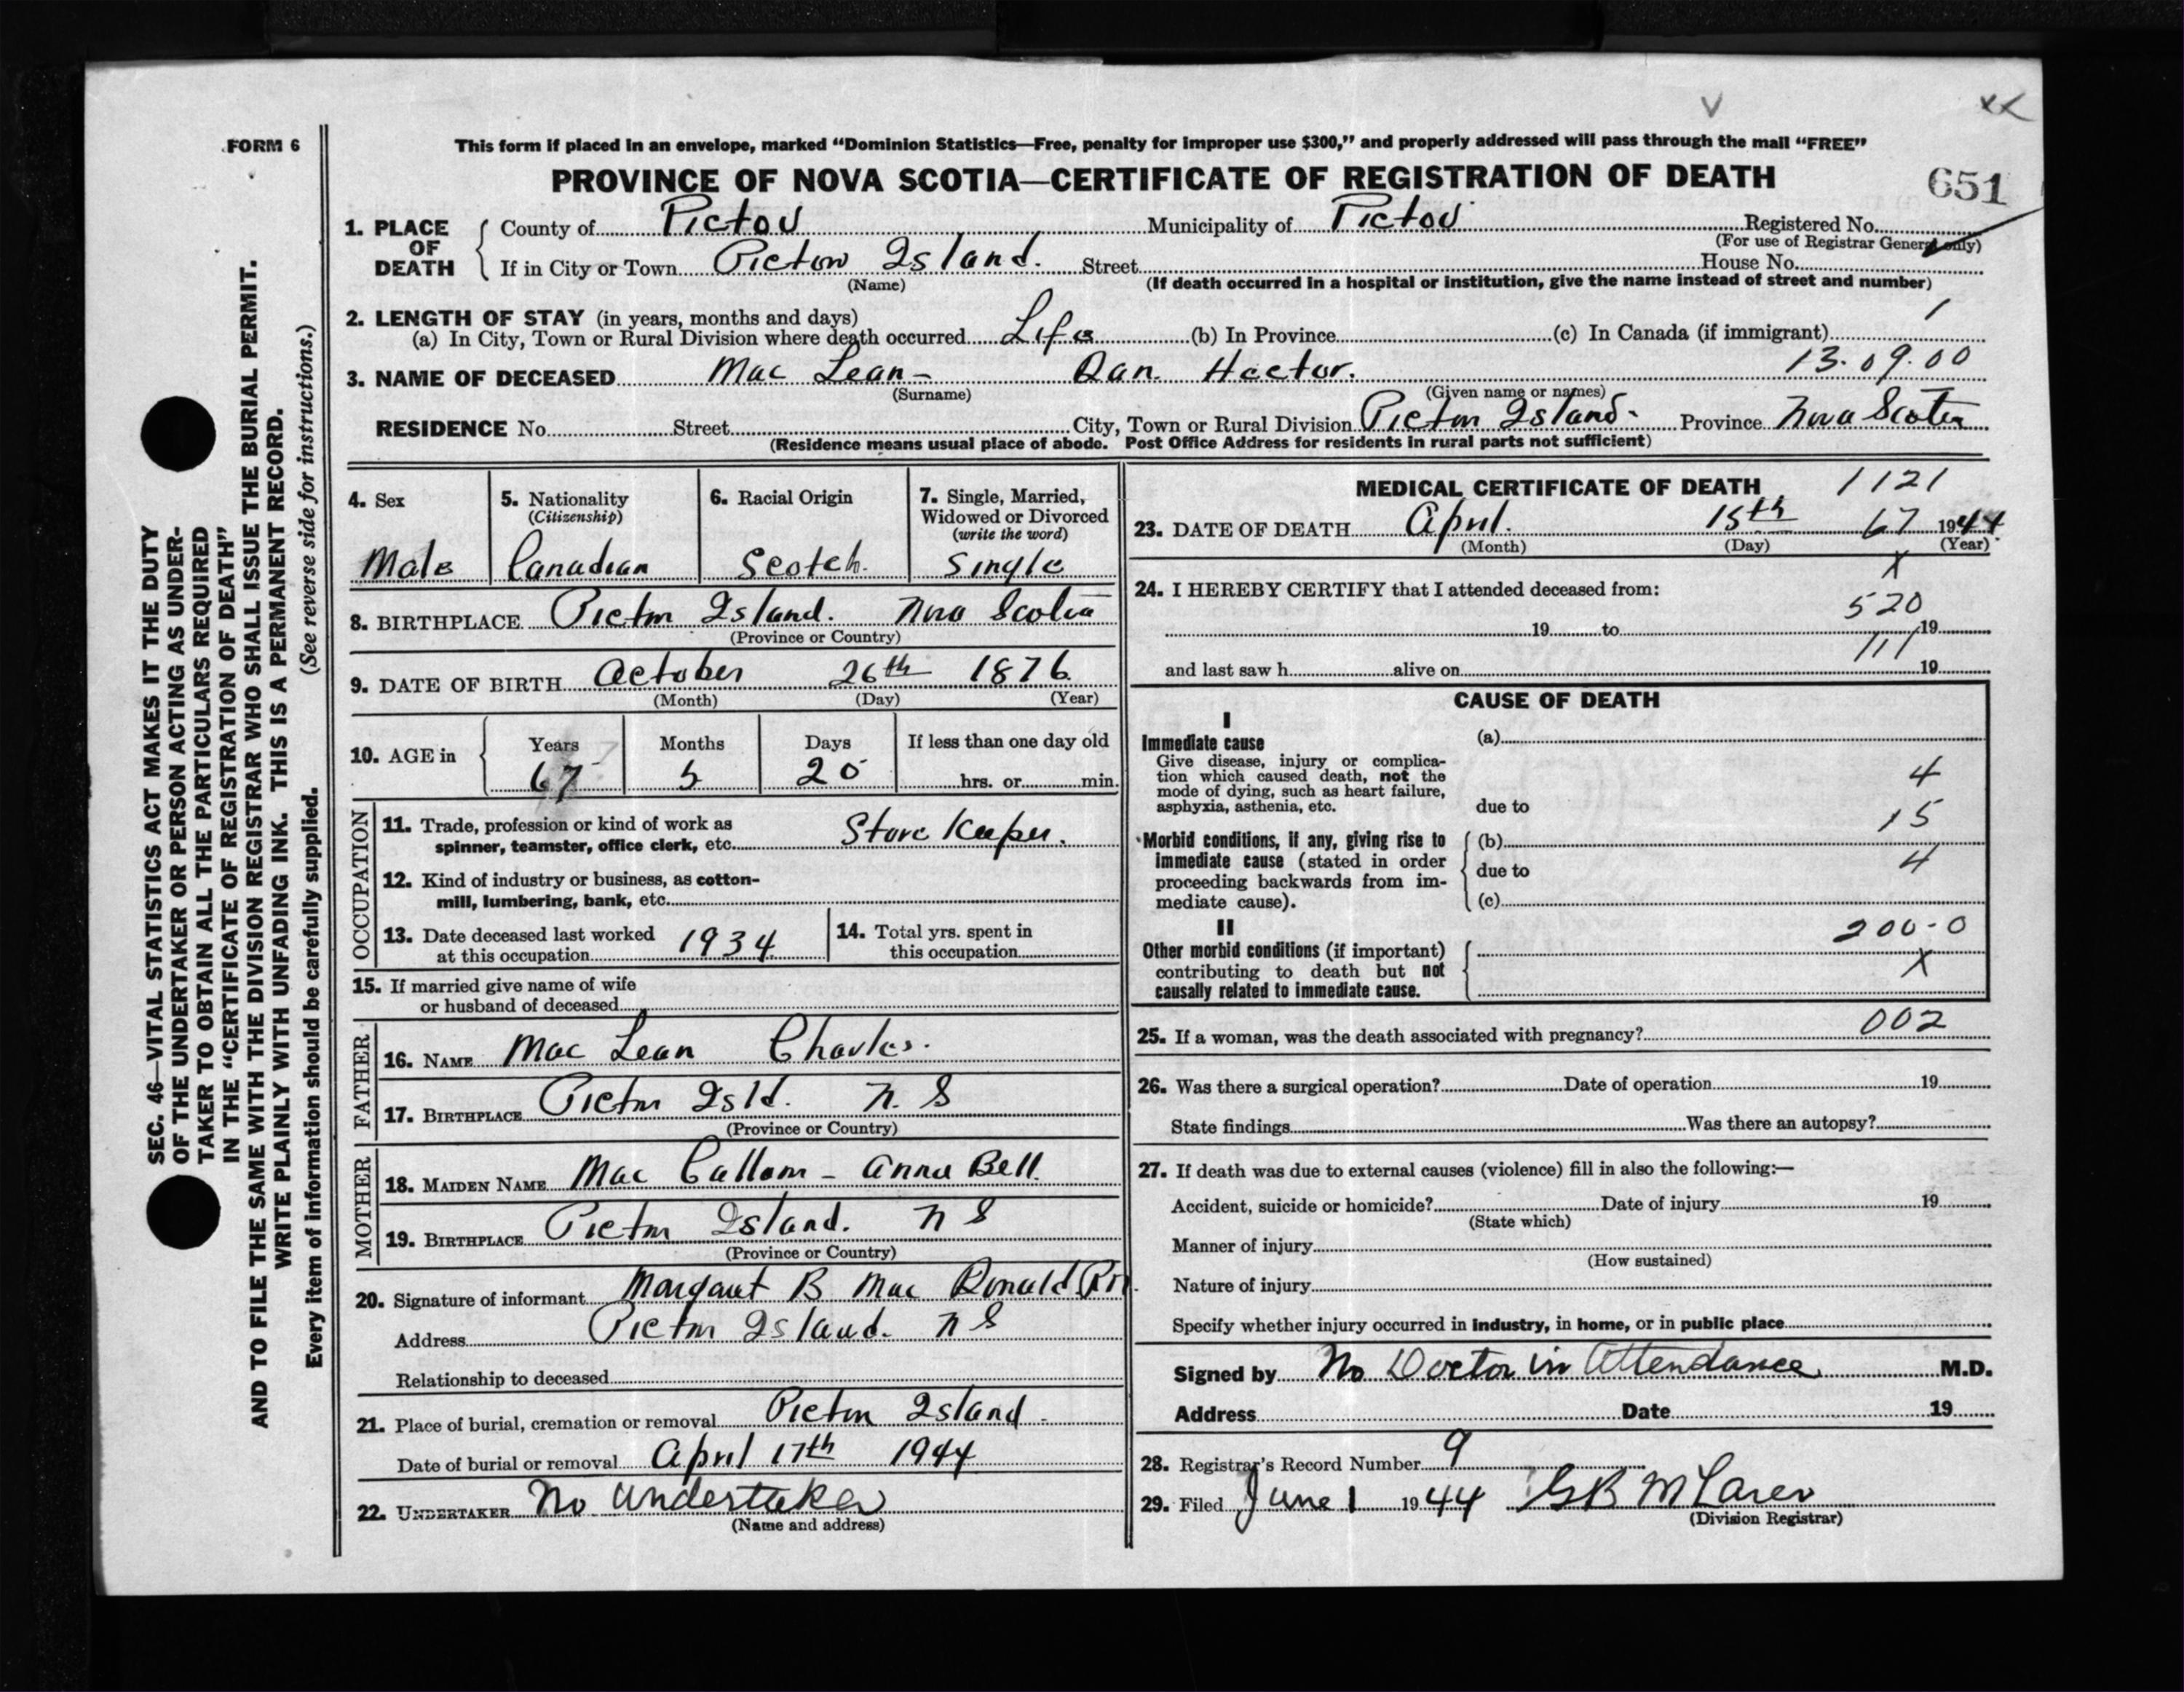 V XX
FORM 6
This form if placed in an envelope, marked “Dominion Statistics—Free, penalty for improper use $300,” and properly addressed will pass through the mail “FREE”
PROVINCE OF NOVA SCOTIA—CERTIFICATE OF REGISTRATION OF DEATH
651
1. PLACE OF DEATH
County of Pictou Municipality of Pictou Registered No.
(For use of Registrar General only)
If in City or Town Pictou Island. Street House No.
(Name) (If death occurred in a hospital or institution, give the name instead of street and number)
2. LENGTH OF STAY (in years, months and days)
(a) In City, Town or Rural Division where death occurred Life (b) In Province (c) In Canada (if immigrant)
3. NAME OF DECEASED Mac Lean - Dan. Hector. 13.09.00
(Surname) (Given name or names)
RESIDENCE No. Street City, Town or Rural Division Pictou Island. Province Nova Scotia
(Residence means usual place of abode. Post Office Address for residents in rural parts not sufficient)
4. Sex
Male
5. Nationality
(Citizenship)
Canadian
6. Racial Origin
Scotch.
7. Single, Married,
Widowed or Divorced
(write the word)
Single
8. BIRTHPLACE Pictou Island. Nova Scotia
(Province or Country)
9. DATE OF BIRTH October 26th 1876
(Month) (Day) (Year)
10. AGE in
Years Months Days If less than one day old
67 5 20 hrs. or min.
OCCUPATION
11. Trade, profession or kind of work as
spinner, teamster, office clerk, etc. Store Keeper.
12. Kind of industry or business, as cotton-
mill, lumbering, bank, etc.
13. Date deceased last worked
at this occupation 1934
14. Total yrs. spent in
this occupation
15. If married give name of wife
or husband of deceased
FATHER
16. NAME Mac Lean Charles.
17. BIRTHPLACE Pictou Isld. N. S
(Province or Country)
MOTHER
18. MAIDEN NAME Mac Callom - Anna Bell.
19. BIRTHPLACE Pictou Island. N S
(Province or Country)
20. Signature of informant Margaret B Mac Donald
Address Pictou Island. N S
Relationship to deceased
21. Place of burial, cremation or removal Pictou Island.
Date of burial or removal April 17th 1944
22. UNDERTAKER No Undertaker
(Name and address)
MEDICAL CERTIFICATE OF DEATH 1121
23. DATE OF DEATH April. 15th 67 1944
(Month) (Day) (Year)
X
24. I HEREBY CERTIFY that I attended deceased from:
520
19 to 19
111
and last saw h alive on 19
CAUSE OF DEATH
I
Immediate cause
Give disease, injury or complica-
tion which caused death, not the
mode of dying, such as heart failure,
asphyxia, asthenia, etc.
(a)
4
due to
15
Morbid conditions, if any, giving rise to
immediate cause (stated in order
proceeding backwards from im-
mediate cause).
(b)
due to 4
(c)
II
Other morbid conditions (if important)
contributing to death but not
causally related to immediate cause.
200-0
X
25. If a woman, was the death associated with pregnancy? 002
26. Was there a surgical operation? Date of operation 19
State findings Was there an autopsy?
27. If death was due to external causes (violence) fill in also the following:—
Accident, suicide or homicide? Date of injury 19
(State which)
Manner of injury
(How sustained)
Nature of injury
Specify whether injury occurred in industry, in home, or in public place
Signed by No Doctor in Attendance M.D.
Address Date 19
28. Registrar's Record Number 9
29. Filed June 1 1944 G B McLaren
(Division Registrar)
SEC. 46—VITAL STATISTICS ACT MAKES IT THE DUTY
OF THE UNDERTAKER OR PERSON ACTING AS UNDER-
TAKER TO OBTAIN ALL THE PARTICULARS REQUIRED
IN THE “CERTIFICATE OF REGISTRATION OF DEATH”
AND TO FILE THE SAME WITH THE DIVISION REGISTRAR WHO SHALL ISSUE THE BURIAL PERMIT.
WRITE PLAINLY WITH UNFADING INK. THIS IS A PERMANENT RECORD.
Every item of information should be carefully supplied. (See reverse side for instructions.)